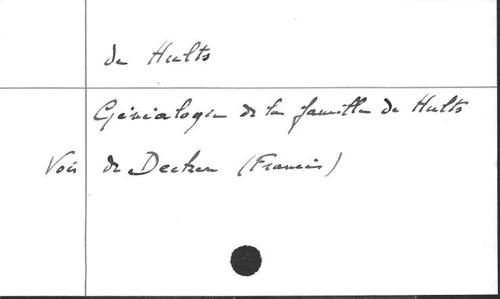 de Hults
Généalogie de la famille de Hults
Voir de Decker (Francis)